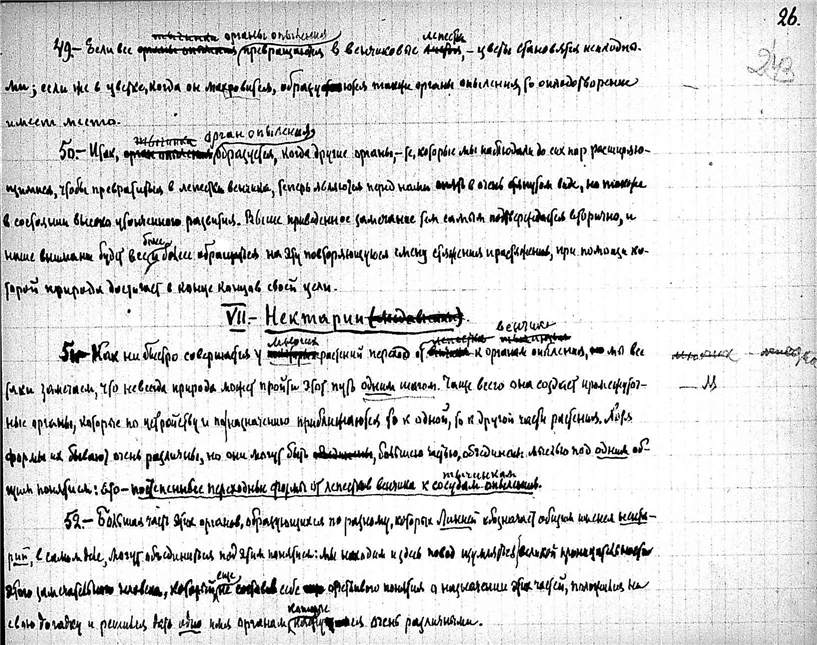 26.
243
тычинки органы опыления лепестки
49.- Если все превращаются в венчиковые, - цветы становятся неплодны-
ми; если же в цветке, когда он махровится, образуются также органы опыления, то оплодотворение
имеет место.
тычинка орган опыления
50.- Итак, образуется, когда другие органы, - те, которые мы наблюдали до сих пор расширяю-
щимися, чтобы превратиться в лепестки венчика, теперь являются перед нами опять в очень стянутом виде, но также
в состоянии высоко утонченного развития. Выше приведенное замечание тем самым подтверждается вторично, и
более
наше внимание будет все более обращаться на эту повторяющуюся смену стяжения и растяжения, при помощи ко-
торой природа достигает в конце концов своей цели.
VII.- Нектарии (медовики).
многих лепестка венчика
51.- Как ни быстро совершается у растений переход от к органам опыления, но мы все
таки замечаем, что не всегда природа может пройти этот путь одним шагом. Чаще всего она создает промежуточ-
ные органы, которые по устройству и по назначению приближаются то к одной, то к другой части растения. Хотя
формы их бывают очень различны, но они могут быть, большею частью, объединены мыслью под одним об-
тычинкам
щим понятием: это - постепенные переходные формы от лепестков венчика к сосудам опыления.
52.- Большая часть этих органов, образующихся по разному, которых Линней обозначает общим именем некта-
рий, в самом деле, могут объединиться под этим понятием: мы находим здесь повод изумляться великой проницательности
еще
этого замечательного человека, который не составив себе отчетливого понятия о назначении этих частей, положился на
которые
свою догадку и решился дать одно имя органам очень различными.